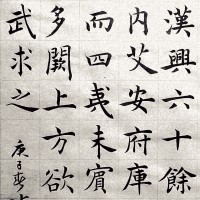 漢興六十餘
內艾安府庫
而四夷未賓
多闕上方欲
武求之
庚子春